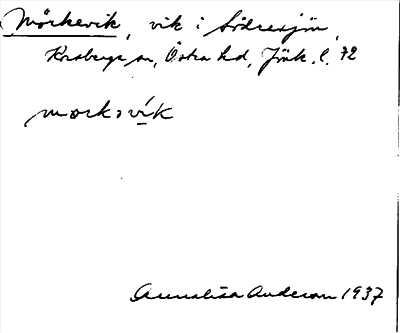 Mörkevik, vik i Södresjön,
Korsberga sn, Östra hd, Jönk. l. 72
mörkəvík
Annalisa Anderson 1937